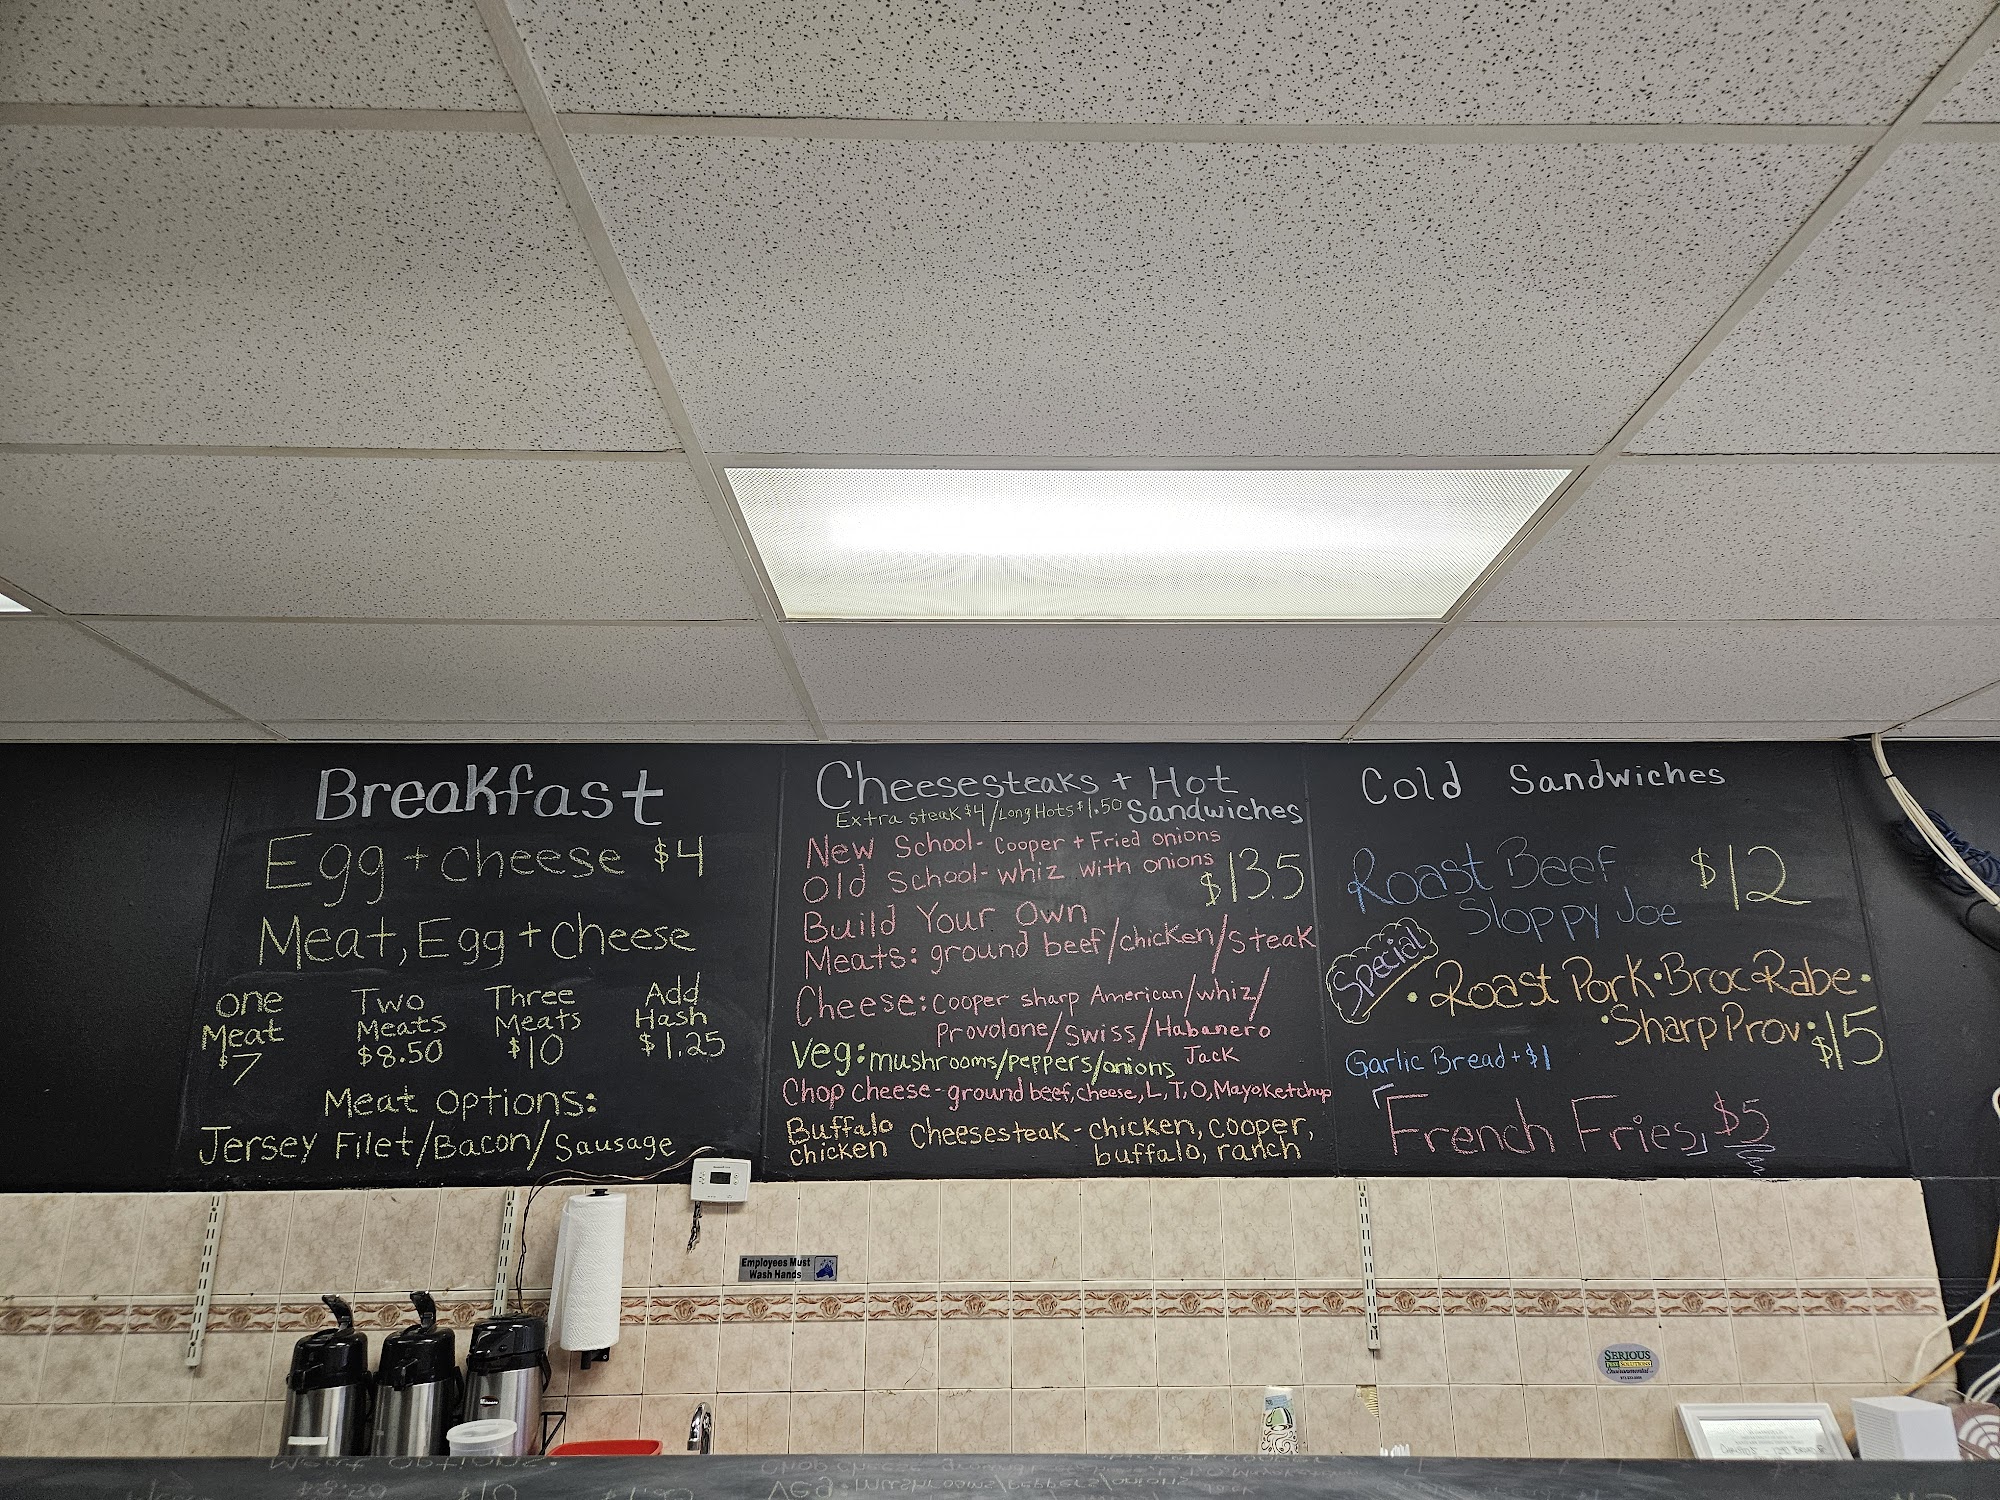 Breakfast
Egg + cheese $4
Meat, Egg + Cheese
one Meat $7
Two Meats $8.50
Three Meats $10
Add Hash $1.25
Meat options:
Jersey Filet/Bacon/Sausage
Cheesesteaks + Hot
Extra steak $4/Long Hots $1.50 Sandwiches
New School- Cooper + Fried onions
Old School- whiz with onions
$13.5
Build Your Own
Meats: ground beef/chicken/steak
Cheese: cooper sharp American/whiz/
Provolone/Swiss/Habanero
Jack
Veg: mushrooms/peppers/onions
Chop cheese- ground beef, cheese, L, T, O, Mayo, Ketchup
Buffalo chicken Cheesesteak- chicken, cooper,
buffalo, ranch
Cold Sandwiches
Roast Beef $12
Sloppy Joe
Special
• Roast Pork • Broc Rabe •
• Sharp Prov • $15
Garlic Bread + $1
French Fries $5
Employees Must
Wash Hands
SERIOUS
PEST SOLUTIONS
Environmental